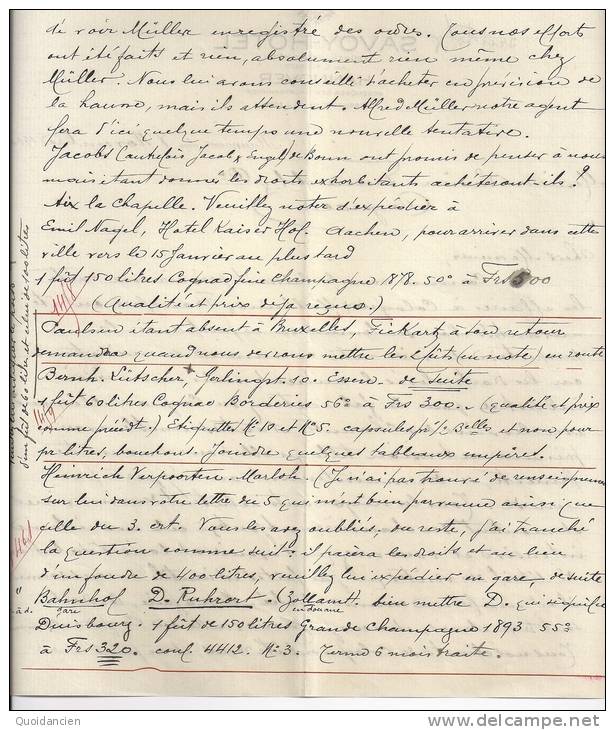 de voir Müller enregistré des ordres. Tous nos efforts
ont été faits et rien, absolument rien même chez
Müller. Nous lui avons conseillé d'acheter en prévision de
la hausse, mais ils attendent. Alfred Müller notre agent
fera d'ici quelque temps une nouvelle tentative.
Jacobs (autrefois Jacob & Engels) de Bonn ont promis de penser à nous
mais étant donnés les droits exhorbitants achèteront-ils?
Aix la Chapelle. Veuillez noter d'expédier à
Emil Nagel, Hotel Kaiser Hof. Aachen, pour arriver dans cette
ville vers le 15 Janvier au plus tard
1 fût 150 litres Cognac fine champagne 1878. 50° à Frs 500
(Qualité et prix déja reçus.)
Paulsen étant absent à Bruxelles, Fickartz à son retour
demandera quand nous devrons mettre les 2 fûts (en note) en route
Bernh. Lütscher, Gerlingst. 10. Essen. de suite
1 fût 60 litres Cognac Borderies 56° à Frs 300. (qualité et prix
comme précédt.) Etiquettes No 10 et No 5. capsules pr/ Belles et non pour
pr litres, bouchons. Joindre quelques tableaux empires.
Heinrich Verpoorten. Marloh. (Je n'ai pas trouvé de renseignements
sur lui dans votre lettre du 5 qui m'est bien parvenue ainsi que
celle du 3. crt. Vous les avez oubliés, du reste, j'ai tranché
la question comme suit: il paiera les droits et au lieu
d'un foudre de 400 litres, veuillez lui expédier en gare de suite
" Bahnhof D. Ruhrort. (Zollamt. bien mettre D. qui signifie
à d. gare en douane
Duisbourg. 1 fût de 150 litres Grande Champagne 1893 55°
à Frs 320. conf. 4412. No 3. Terme 6 mois traite.
d'un fût de 60 litres et celui de 150 litres
SAVOY HOTEL
Quoidancien
www.delcampe.net